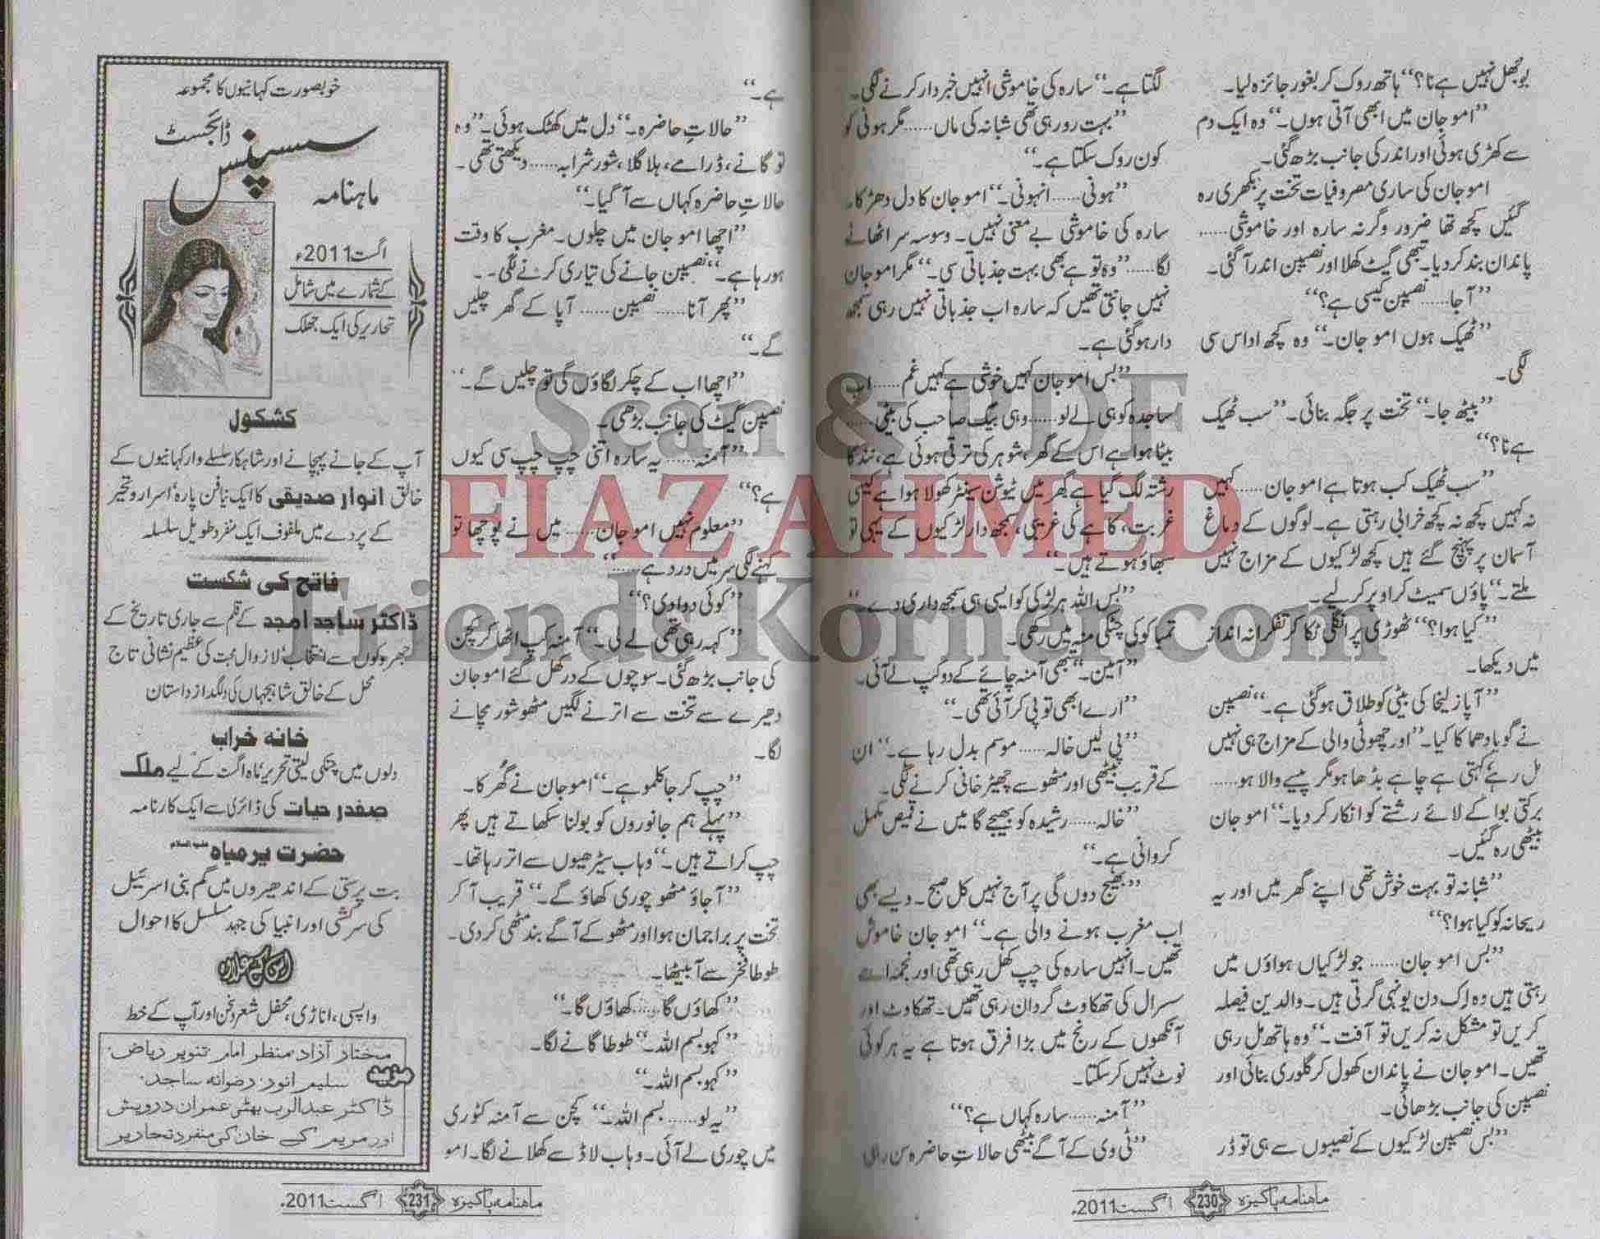 بوجھل نہیں ہے نا؟“ ہاتھ روک کر بغور جائزہ لیا۔
”امو جان میں ابھی آتی ہوں۔“ وہ ایک دم
سے کھڑی ہوئی اور اندر کی جانب بڑھ گئی۔
امو جان کی ساری مصروفیات تخت پر بکھری رہ
گئیں کچھ تھا ضرور وگرنہ سارہ اور خاموشی......
پاندان بند کر دیا۔ تبھی گیٹ کھلا اور نصیبن اندر آ گئی۔
”آجا...... نصیبن کیسی ہے؟“
”ٹھیک ہوں امو جان۔“ وہ کچھ اداس سی
لگی۔
”بیٹھ جا۔“ تخت پر جگہ بنائی۔ ”سب ٹھیک
ہے نا؟“
”سب ٹھیک کب ہوتا ہے امو جان...... کہیں
نہ کہیں کچھ نہ کچھ خرابی رہتی ہے۔ لوگوں کے دماغ
آسمان پر پہنچ گئے ہیں کچھ لڑکیوں کے مزاج نہیں
ملتے۔“ پاؤں سمیٹ کر اوپر کر لیے۔
”کیا ہوا؟“ ٹھوڑی پر انگلی ٹکا کر تفکرانہ انداز
میں دیکھا۔
”آپا زلیخا کی بیٹی کو طلاق ہو گئی ہے۔“ نصیبن
نے گویا دھماکا کیا۔ ”اور چھوٹی والی کے مزاج ہی نہیں
مل رہے کہتی ہے چاہے بڈھا ہو مگر پیسے والا ہو......
برکتی بوا کے لائے رشتے کو انکار کر دیا۔“ امو جان
بیٹھی رہ گئیں۔
”شبانہ تو بہت خوش تھی اپنے گھر میں اور یہ
ریحانہ کو کیا ہوا؟“
”بس امو جان...... جو لڑکیاں ہواؤں میں
رہتی ہیں وہ اک دن یونہی گرتی ہیں۔ والدین فیصلہ
کریں تو مشکل نہ کریں تو آفت۔“ وہ ہاتھ مل رہی
تھیں۔ امو جان نے پاندان کھول کر گلوری بنائی اور
نصیبن کی جانب بڑھائی۔
”بس نصیبن لڑکیوں کے نصیبوں سے ہی تو ڈر
لگتا ہے۔“ سارہ کی خاموشی انہیں خبردار کرنے لگی۔
”بہت رو رہی تھی شبانہ کی ماں...... مگر ہونی کو
کون روک سکتا ہے۔“
”ہونی...... انہونی۔“ امو جان کا دل دھڑکا۔
سارہ کی خاموشی بے معنی نہیں۔ وسوسہ سر اٹھانے
لگا...... ”وہ تو ہے بھی بہت جذباتی سی۔“ مگر امو جان
نہیں جانتی تھیں کہ سارہ اب جذباتی نہیں رہی سمجھ
دار ہو گئی ہے۔
”بس امو جان کہیں خوشی ہے کہیں غم...... اب
ساجدہ کو ہی لے لو...... وہی بیگ صاحب کی بیٹی......
بیٹا ہوا ہے اس کے گھر، شوہر کی ترقی ہوئی ہے، نند کا
رشتہ لگ گیا ہے گھر میں ٹیوشن سینٹر کھولا ہوا ہے کیسی
غربت، کاہے کی غریبی، سمجھ دار لڑکیوں کے یہی تو
سبھاؤ ہوتے ہیں۔“
”بس اللہ ہر لڑکی کو ایسی ہی سمجھ داری دے۔“
تمباکو کی چٹکی منہ میں رکھی۔
”آمین۔“ تبھی آمنہ چائے کے دو کپ لے آئی۔
”ارے ابھی تو پی کر آئی تھی۔“
”پی لیں خالہ...... موسم بدل رہا ہے۔“ ان
کے قریب بیٹھی اور مٹھو سے چھیڑ خانی کرنے لگی۔
”خالہ...... رشیدہ کو بھیجے گا میں نے قمیص مکمل
کروانی ہے۔“
”بھیج دوں گی پر آج نہیں کل صبح۔ ویسے بھی
اب مغرب ہونے والی ہے۔“ امو جان خاموش
تھیں۔ انہیں سارہ کی چپ کھل رہی تھی اور نجمہ اسے
سسرال کی تھکاوٹ گردان رہی تھیں۔ تھکاوٹ اور
آنکھوں کے رنج میں بڑا فرق ہوتا ہے یہ ہر کوئی
نوٹ نہیں کر سکتا۔
”آمنہ...... سارہ کہاں ہے؟“
”ٹی وی کے آگے بیٹھی حالاتِ حاضرہ سن رہی
ماہنامہ پاکیزہ 230 اگست 2011ء
ہے۔“
”حالاتِ حاضرہ۔“ دل میں کھٹک ہوئی۔ ”وہ
تو گانے، ڈرامے، ہلا گلا، شور شرابہ...... دیکھتی تھی۔
حالاتِ حاضرہ کہاں سے آ گیا۔“
”اچھا امو جان میں چلوں۔ مغرب کا وقت
ہو رہا ہے۔“ نصیبن جانے کی تیاری کرنے لگی۔
”پھر آنا...... نصیبن...... آپا کے گھر چلیں
گے۔“
”اچھا اب کے چکر لگاؤں گی تو چلیں گے۔“
نصیبن گیٹ کی جانب بڑھی۔
”آمنہ...... یہ سارہ اتنی چپ چپ سی کیوں
ہے؟“
”معلوم نہیں امو جان...... میں نے پوچھا تو
کہنے لگی سر میں درد ہے......“
”کوئی دوا دی؟“
”کہہ رہی تھی لے لی۔“ آمنہ کپ اٹھا کر کچن
کی جانب بڑھ گئی۔ سوچوں کے در کھل گئے امو جان
دھیرے سے تخت سے اترنے لگیں مٹھو شور مچانے
لگا۔
”چپ کر جا کلموہے۔“ امو جان نے گھرکا۔
”پہلے ہم جانوروں کو بولنا سکھاتے ہیں پھر
چپ کراتے ہیں۔“ وہاب سیڑھیوں سے اتر رہا تھا۔
”آ جاؤ مٹھو چوری کھاؤ گے۔“ قریب آ کر
تخت پر براجمان ہوا اور مٹھو کے آگے بند مٹھی کر دی۔
طوطا فخر سے آ بیٹھا۔
”کھاؤں گا...... کھاؤں گا۔“
”کہو بسم اللہ۔“ طوطا گانے لگا۔
”کہو بسم اللہ۔“
”یہ لو...... بسم اللہ۔“ کچن سے آمنہ کٹوری
میں چوری لے آئی۔ وہاب لاڈ سے کھلانے لگا۔ امو
ماہنامہ پاکیزہ 231 اگست 2011ء
خوبصورت کہانیوں کا مجموعہ
سسپنس ڈائجسٹ
ماہنامہ
اگست 2011ء
کے شمارے میں شامل
تحاریر کی ایک جھلک
کشکول
آپ کے جانے پہچانے اور شاہکار سلسلے وار کہانیوں کے
خالق انوار صدیقی کا ایک نیا فن پارہ، اسرار و تحیر
کے پردے میں ملفوف ایک منفرد طویل سلسلہ
فاتح کی شکست
ڈاکٹر ساجد امجد کے قلم سے جاری تاریخ کے
جھروکوں سے انتخاب، لازوال محبت کی عظیم نشانی تاج
محل کے خالق شاہجہاں کی دلگداز داستان
خانہ خراب
دلوں میں چٹکی لیتی تحریر، ماہ اگست کے لیے ملک
صفدر حیات کی ڈائری سے ایک کارنامہ
حضرت یرمیاہ علیہ السلام
بت پرستی کے اندھیروں میں گم بنی اسرئیل
کی سرکشی اور انبیا کی جہد مسلسل کا احوال
اس کے علاوہ
واپسی، اناڑی، محفل شعر و سخن اور آپ کے خط
مزید
مختار آزاد، منظر امام، تنویر ریاض،
سلیم انور، رضوانہ ساجد،
ڈاکٹر عبدالرب بھٹی، عمران درویش
اور مریم کے خان کی منفرد تحاریر
Scan & PDF
FIAZ AHMED
Friends Korner.com